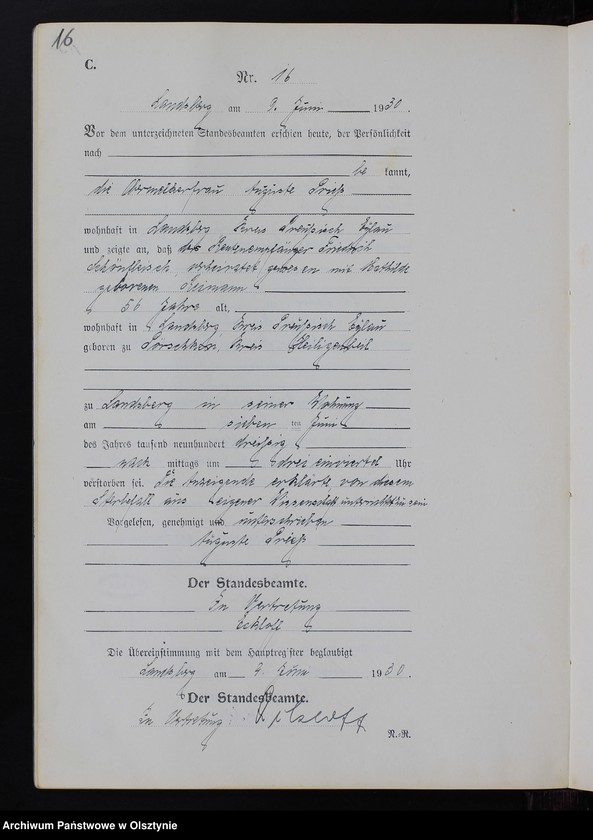 16
C.
Nr. 16
Landsberg am 9. Juni 1930.
Vor dem unterzeichneten Standesbeamten erschien heute, der Persönlichkeit
nach
be kannt,
die frau Auguste
wohnhaft in Landsberg, Kreis Preußisch Eylau
und zeigte an, daß der Rentenempfänger Friedrich
verheiratet gewesen mit Mathilde
geborenen Reimann
56 Jahre alt,
wohnhaft in Landsberg, Kreis Preußisch Eylau
geboren zu Kreis Heiligenbeil
zu Landsberg in seiner Wohnung
am sieben ten Juni
des Jahres tausend neunhundert dreißig
nach mittags um drei einviertel Uhr
verstorben sei. Die Anzeigende erklärte von diesem
Sterbefall aus eigener Wissenschaft unterrichtet zu sein
Vorgelesen, genehmigt und unterschrieben
Auguste
Der Standesbeamte.
In Vertretung
Die Übereinstimmung mit dem Hauptregister beglaubigt
Landsberg am 9. Juni 1930.
Der Standesbeamte.
In Vertretung
Archiwum Państwowe w Olsztynie